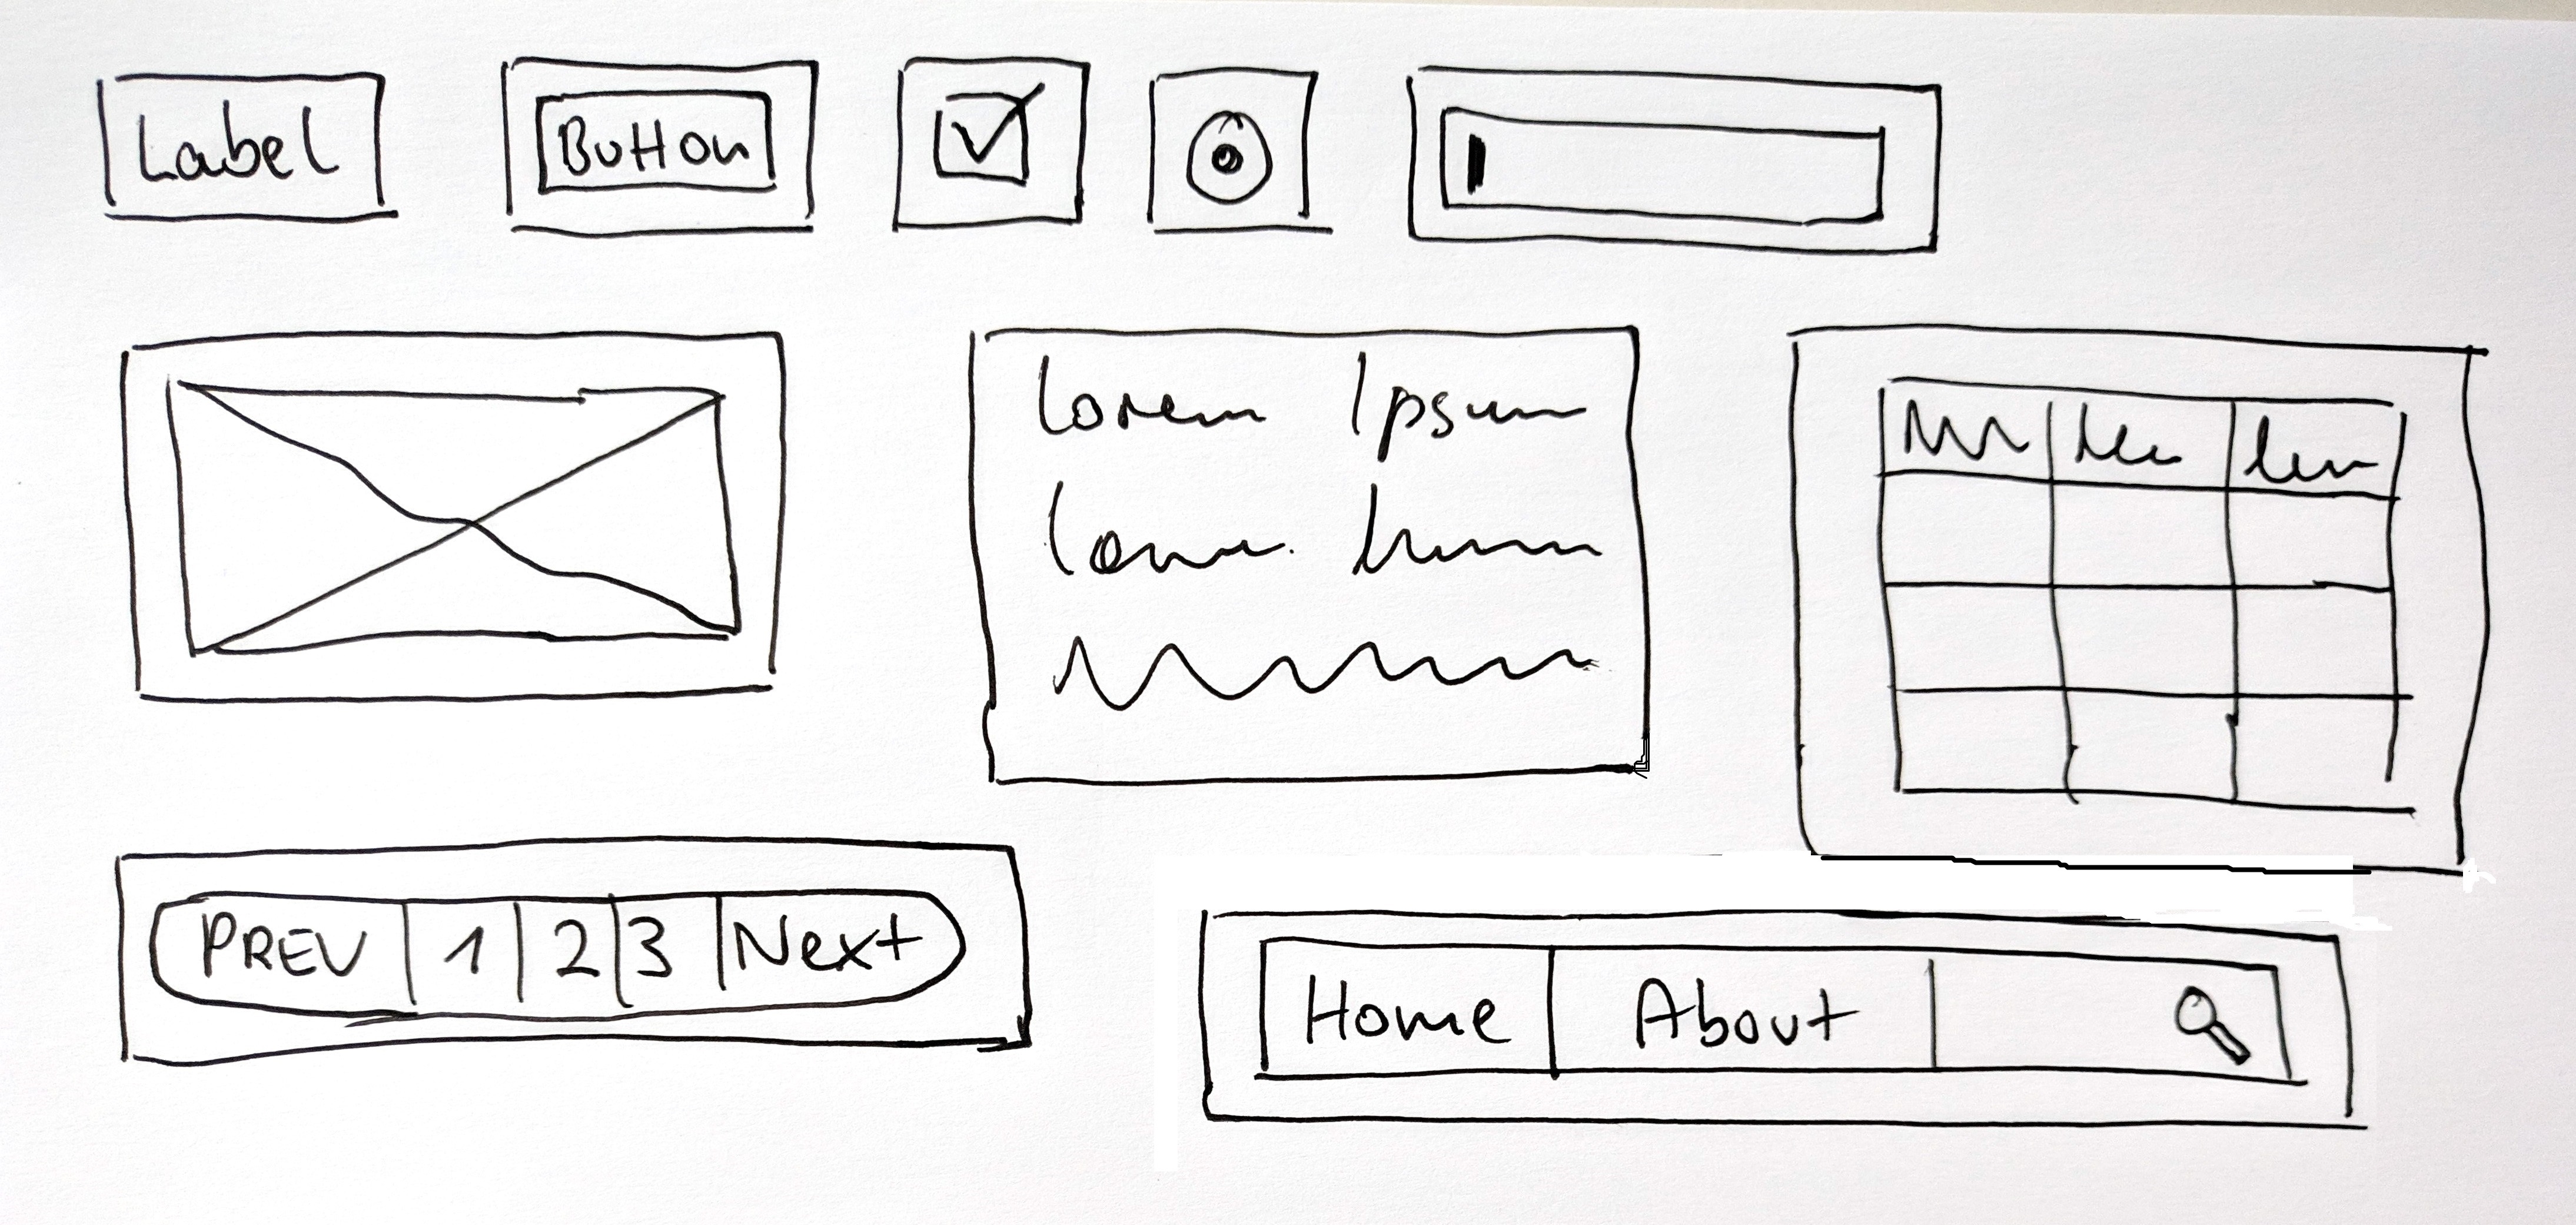 Label
Button
Lorem Ipsum
PREV 1 2 3 Next
Home About